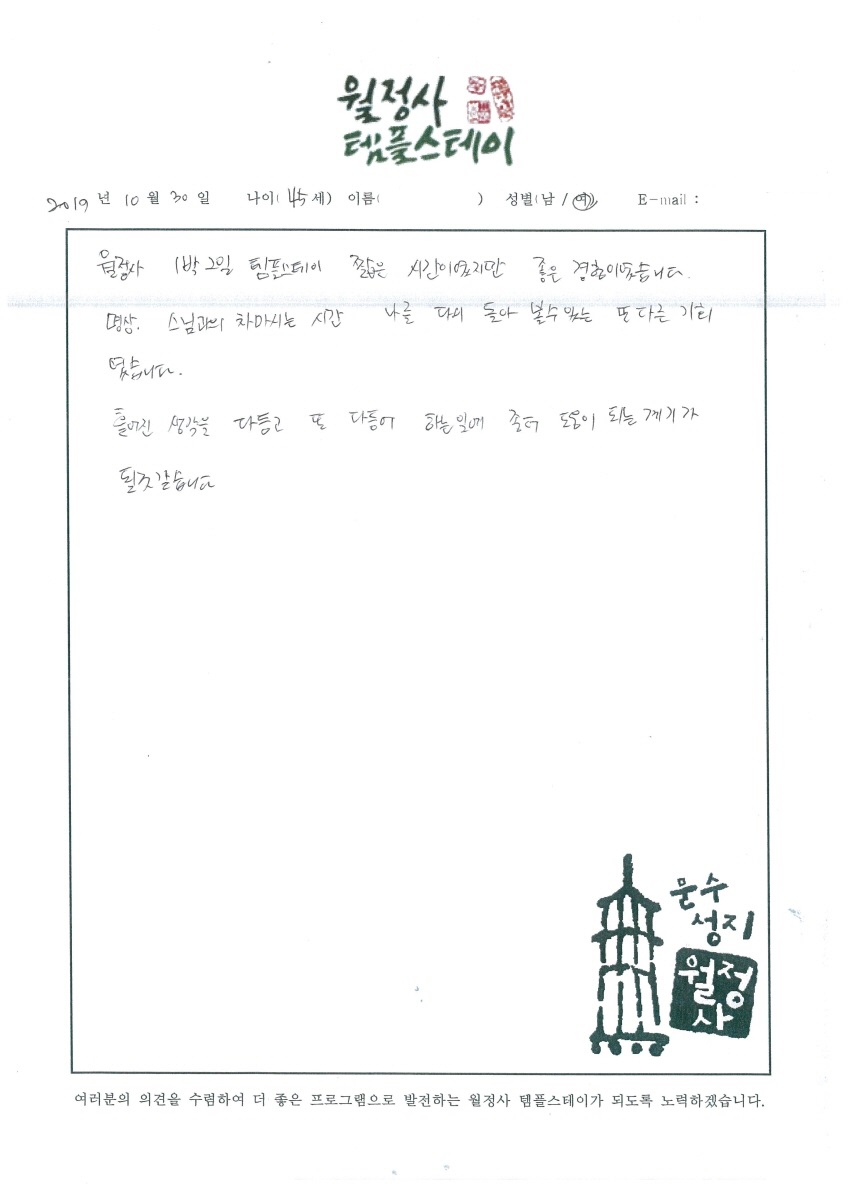 월정사
템플스테이
2019 년 10 월 30 일 나이( 45 세) 이름( ) 성별(남 / 여) E-mail :
월정사 1박 2일 템플스테이 짧은 시간이였지만 좋은 경험이였습니다.
명상. 스님과의 차마시는 시간 나를 다시 돌아 볼수 있는 또 다른 기회
였습니다.
흩어진 생각을 다듬고 또 다듬어 하는일에 좀더 도움이 되는 계기가
될것 같습니다
문수
성지
월정
사
여러분의 의견을 수렴하여 더 좋은 프로그램으로 발전하는 월정사 템플스테이가 되도록 노력하겠습니다.